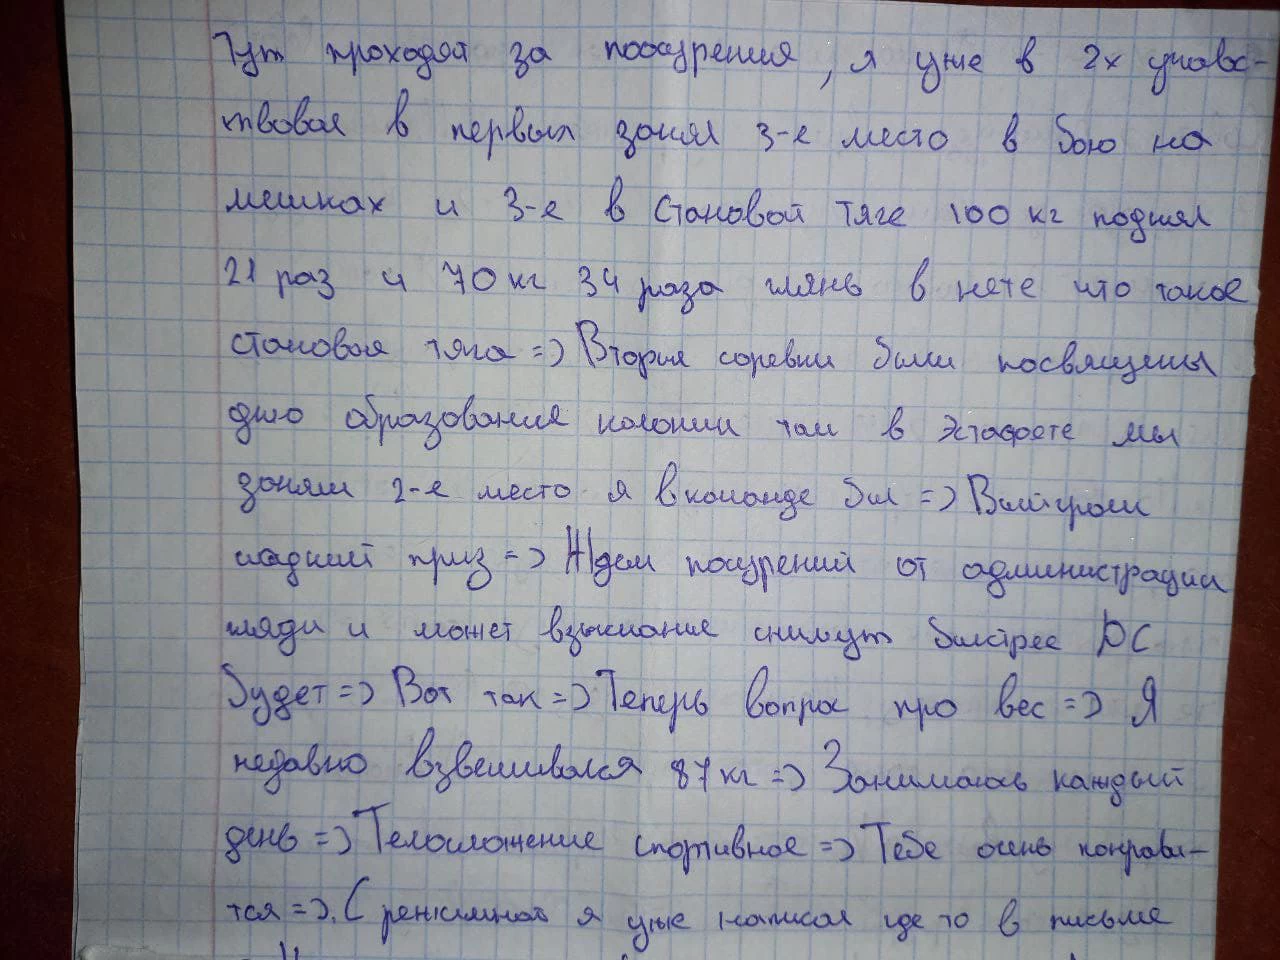 Тут проходят за поощрения, я уже в 2х учавс-
твовал в первых занял 3-е место в бою на
мешках и 3-е в становой тяге 100 кг поднял
21 раз и 70 кг 34 раза глянь в нете что такое
становая тяга => Вторые соревы были посвящены
дню образования колонии там в эстафете мы
заняли 2-е место я в команде был => Выйграли
сладкий приз => Ждем поощрений от администрации
гляди и может взыскание снимут быстрее ДС
будет => Вот так => Теперь вопрос про вес => Я
недавно взвешивался 87 кг => Занимаюсь каждый
день => Телосложение спортивное => Тебе очень понрави-
тся =>. С режимной я уже написал где то в письме